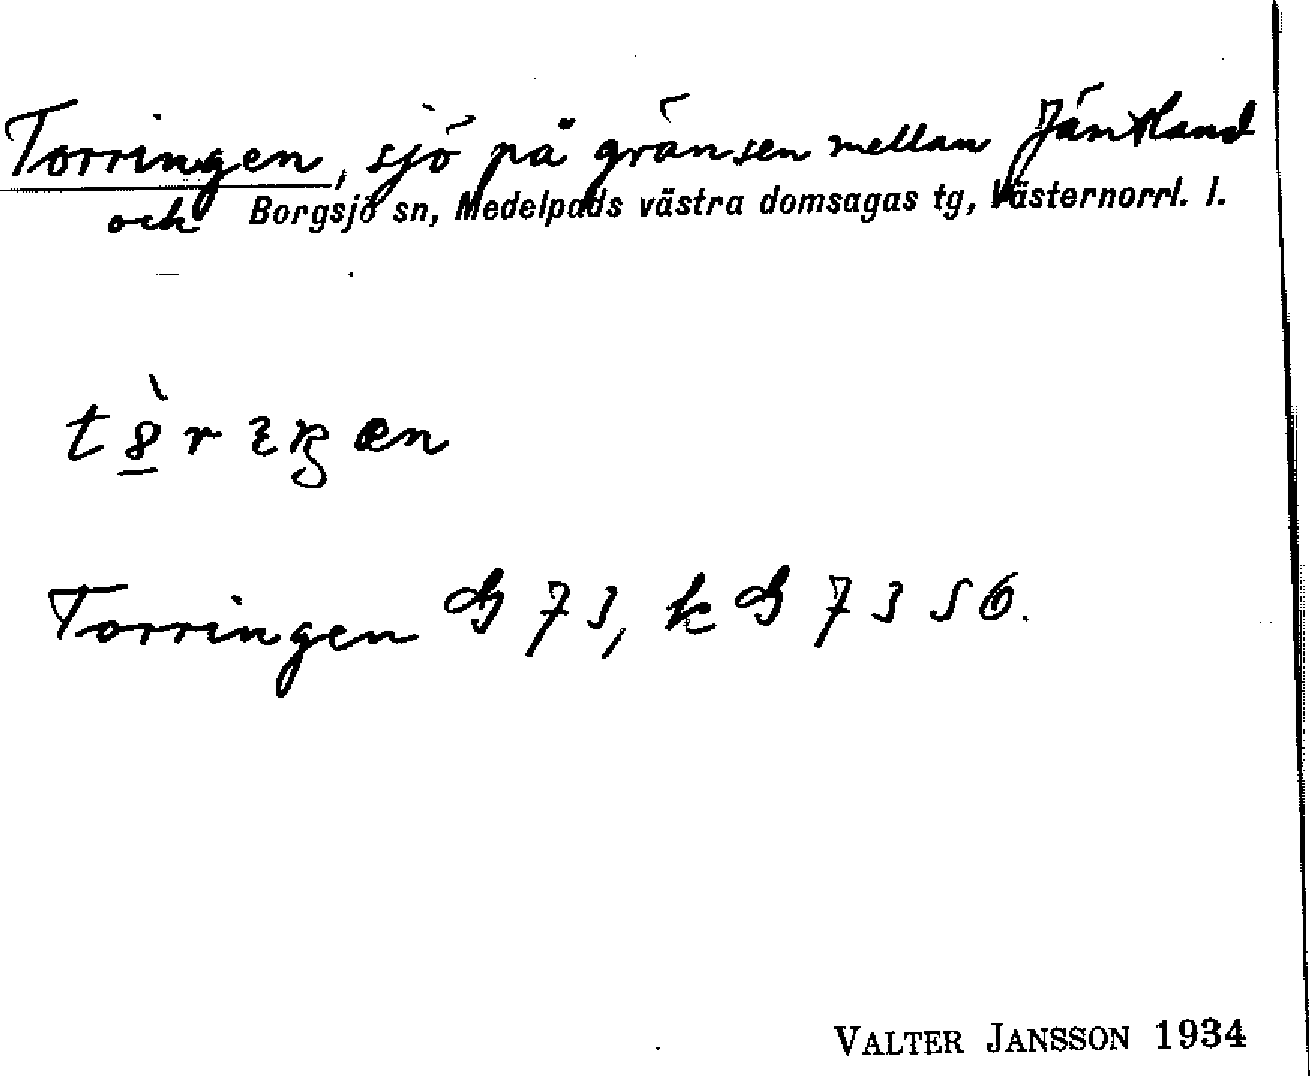 Torringen, sjö på gränsen mellan Jämtland
och Borgsjö sn, Medelpads västra domsagas tg, Västernorrl. l.
Torringen G 73, k G 7356.
VALTER JANSSON 1934